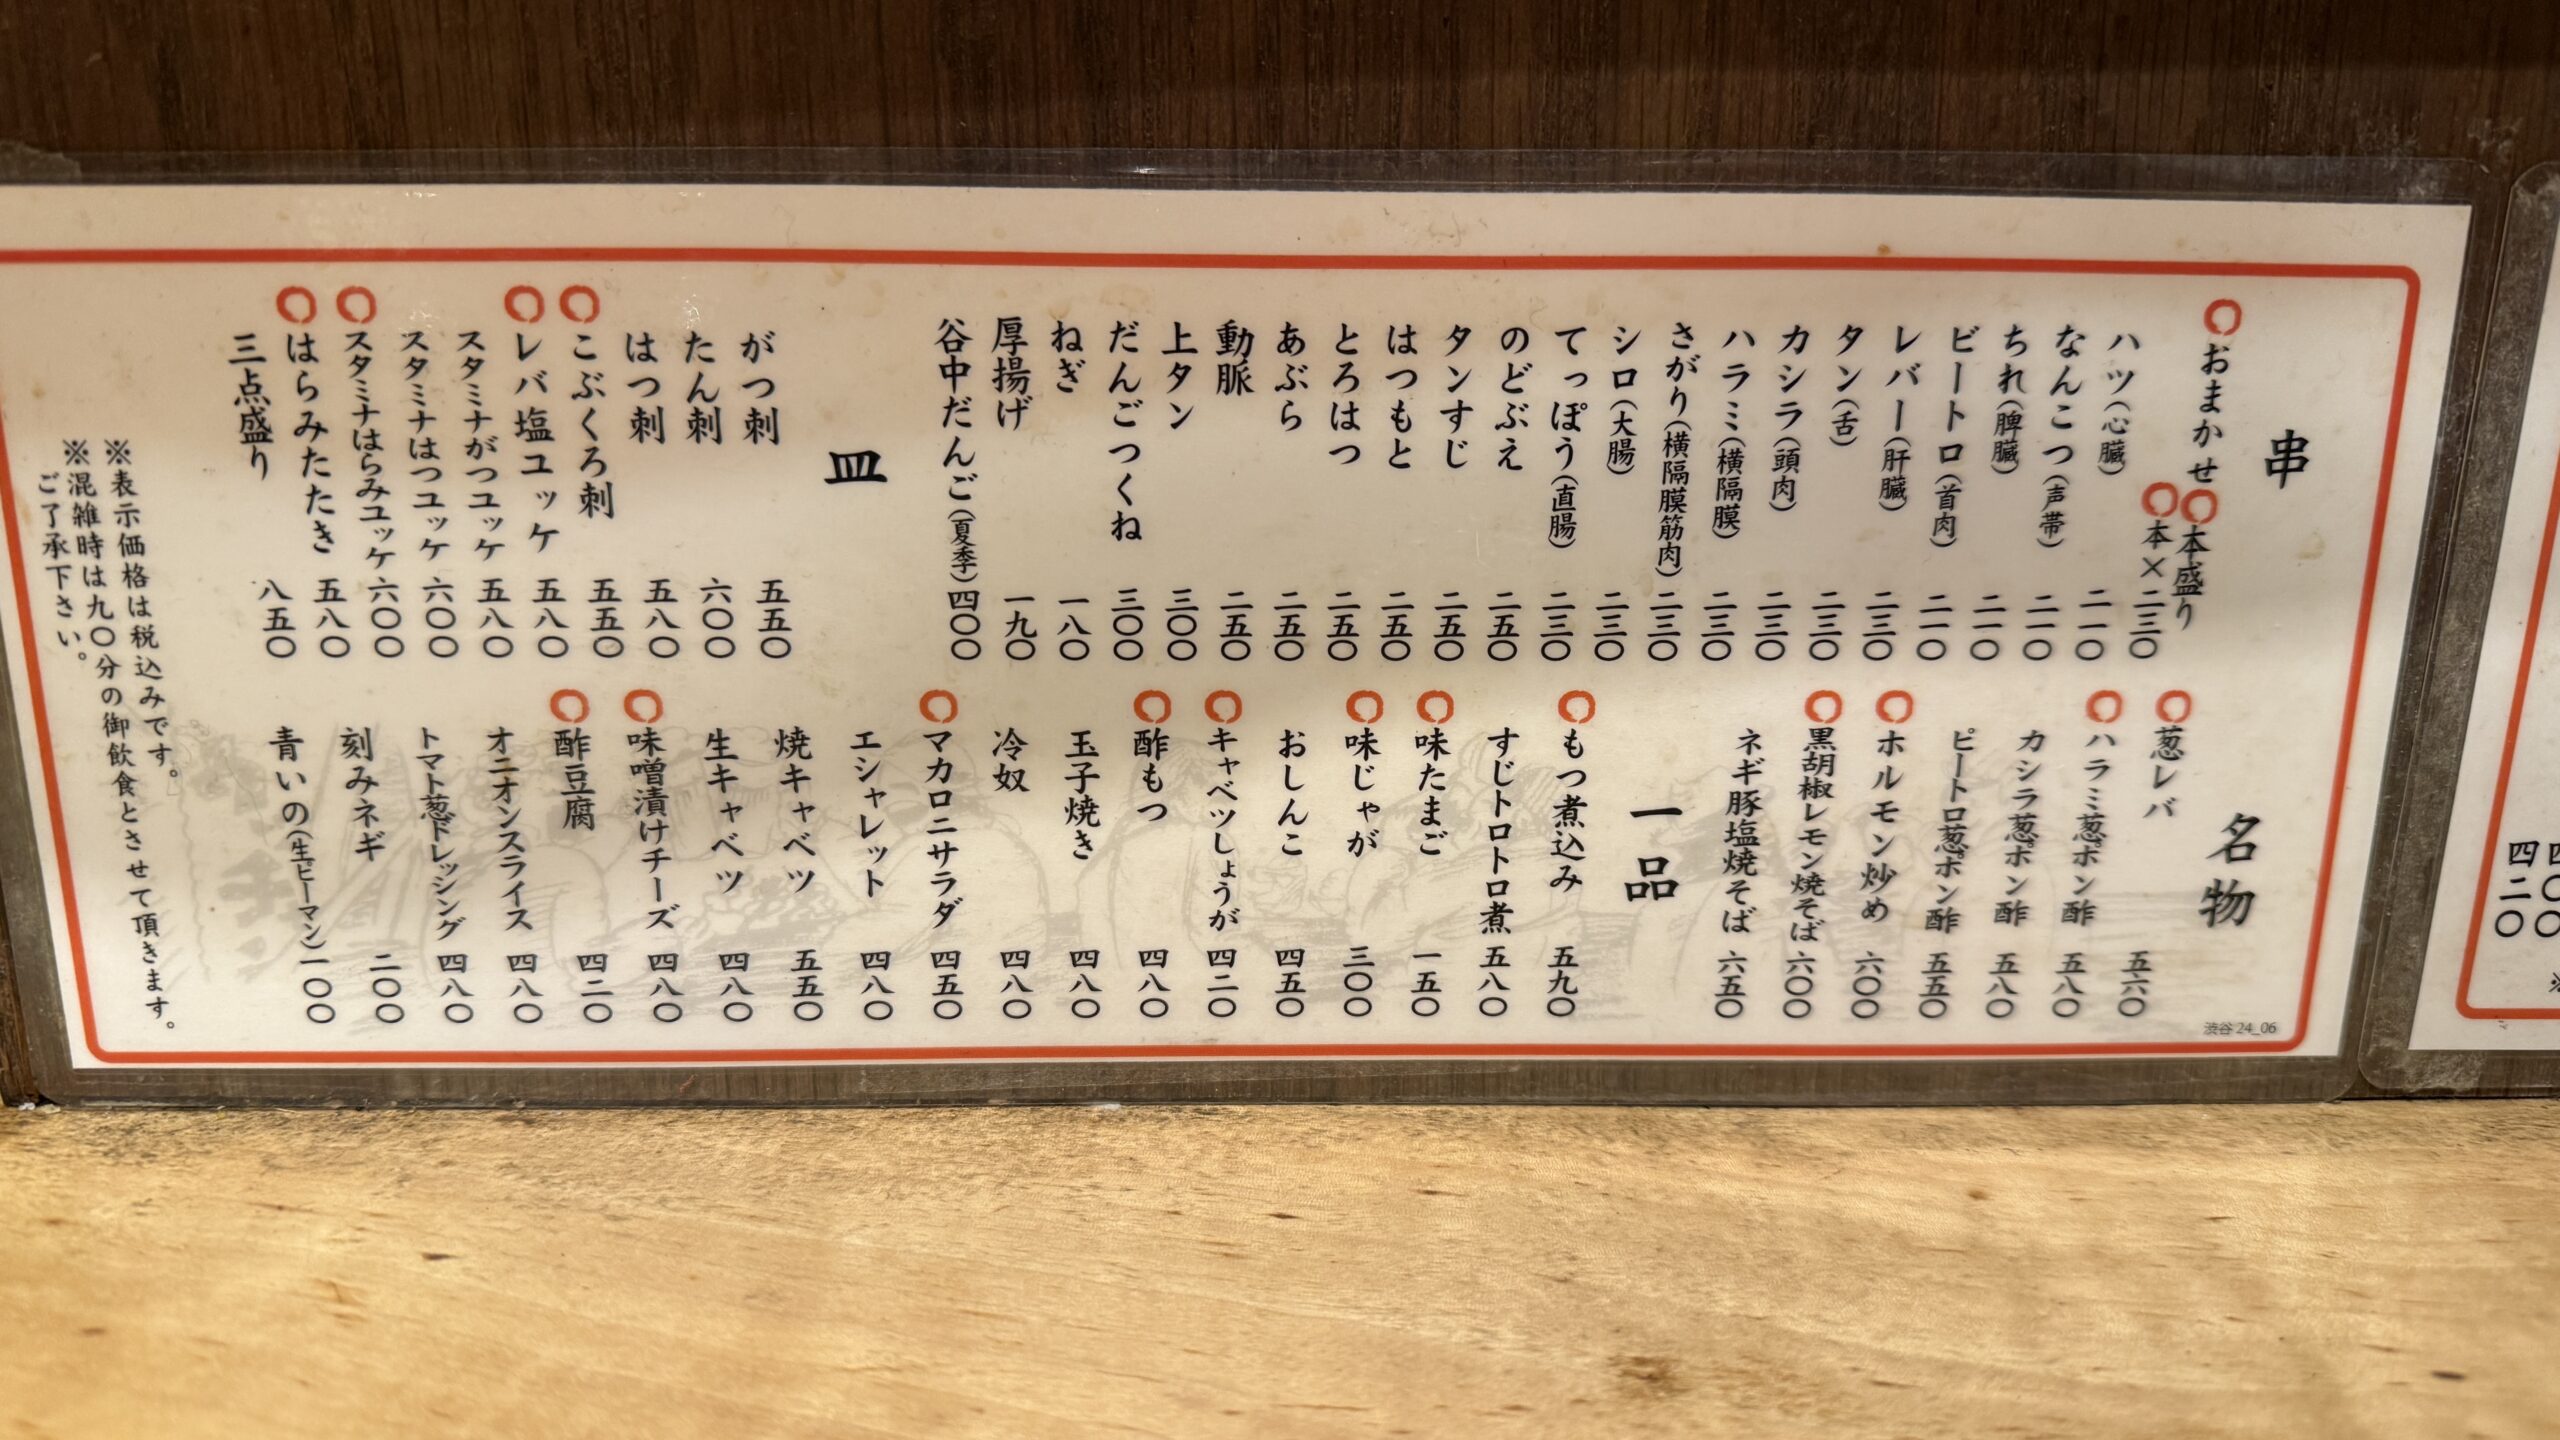 串
おまかせ〇本盛り
〇本×二三〇
ハツ(心臓) 二一〇
なんこつ(声帯) 二一〇
ちれ(脾臓) 二一〇
ピートロ(首肉) 二一〇
レバー(肝臓) 二三〇
タン(舌) 二三〇
カシラ(頭肉) 二三〇
ハラミ(横隔膜) 二三〇
さがり(横隔膜筋肉) 二三〇
シロ(大腸) 二三〇
てっぽう(直腸) 二三〇
のどぶえ 二五〇
タンすじ 二五〇
はつもと 二五〇
とろはつ 二五〇
あぶら 二五〇
動脈 二五〇
上タン 三〇〇
だんごつくね 三〇〇
ねぎ 一八〇
厚揚げ 一九〇
谷中だんご(夏季) 四〇〇
皿
がつ刺 五五〇
たん刺 六〇〇
はつ刺 五八〇
こぶくろ刺 五五〇
レバ塩ユッケ 五八〇
スタミナがつユッケ 五八〇
スタミナはつユッケ 六〇〇
スタミナはらみユッケ 六〇〇
はらみたたき 五八〇
三点盛り 八五〇
名物
葱レバ 五六〇
ハラミ葱ポン酢 五八〇
カシラ葱ポン酢 五八〇
ピートロ葱ポン酢 五五〇
ホルモン炒め 六〇〇
黒胡椒レモン焼そば 六〇〇
ネギ豚塩焼そば 六五〇
一品
もつ煮込み 五九〇
すじトロトロ煮 五八〇
味たまご 一五〇
味じゃが 三〇〇
おしんこ 四五〇
キャベツしょうが 四二〇
酢もつ 四八〇
玉子焼き 四八〇
冷奴 四八〇
マカロニサラダ 四五〇
エシャレット 四八〇
焼キャベツ 五五〇
生キャベツ 四八〇
味噌漬けチーズ 四八〇
酢豆腐 四二〇
オニオンスライス 四八〇
トマト葱ドレッシング 四八〇
刻みネギ 二〇〇
青いの(生ピーマン) 一〇〇
※表示価格は税込みです。
※混雑時は九〇分の御飲食とさせて頂きます。
ご了承下さい。
渋谷24_06
四二〇